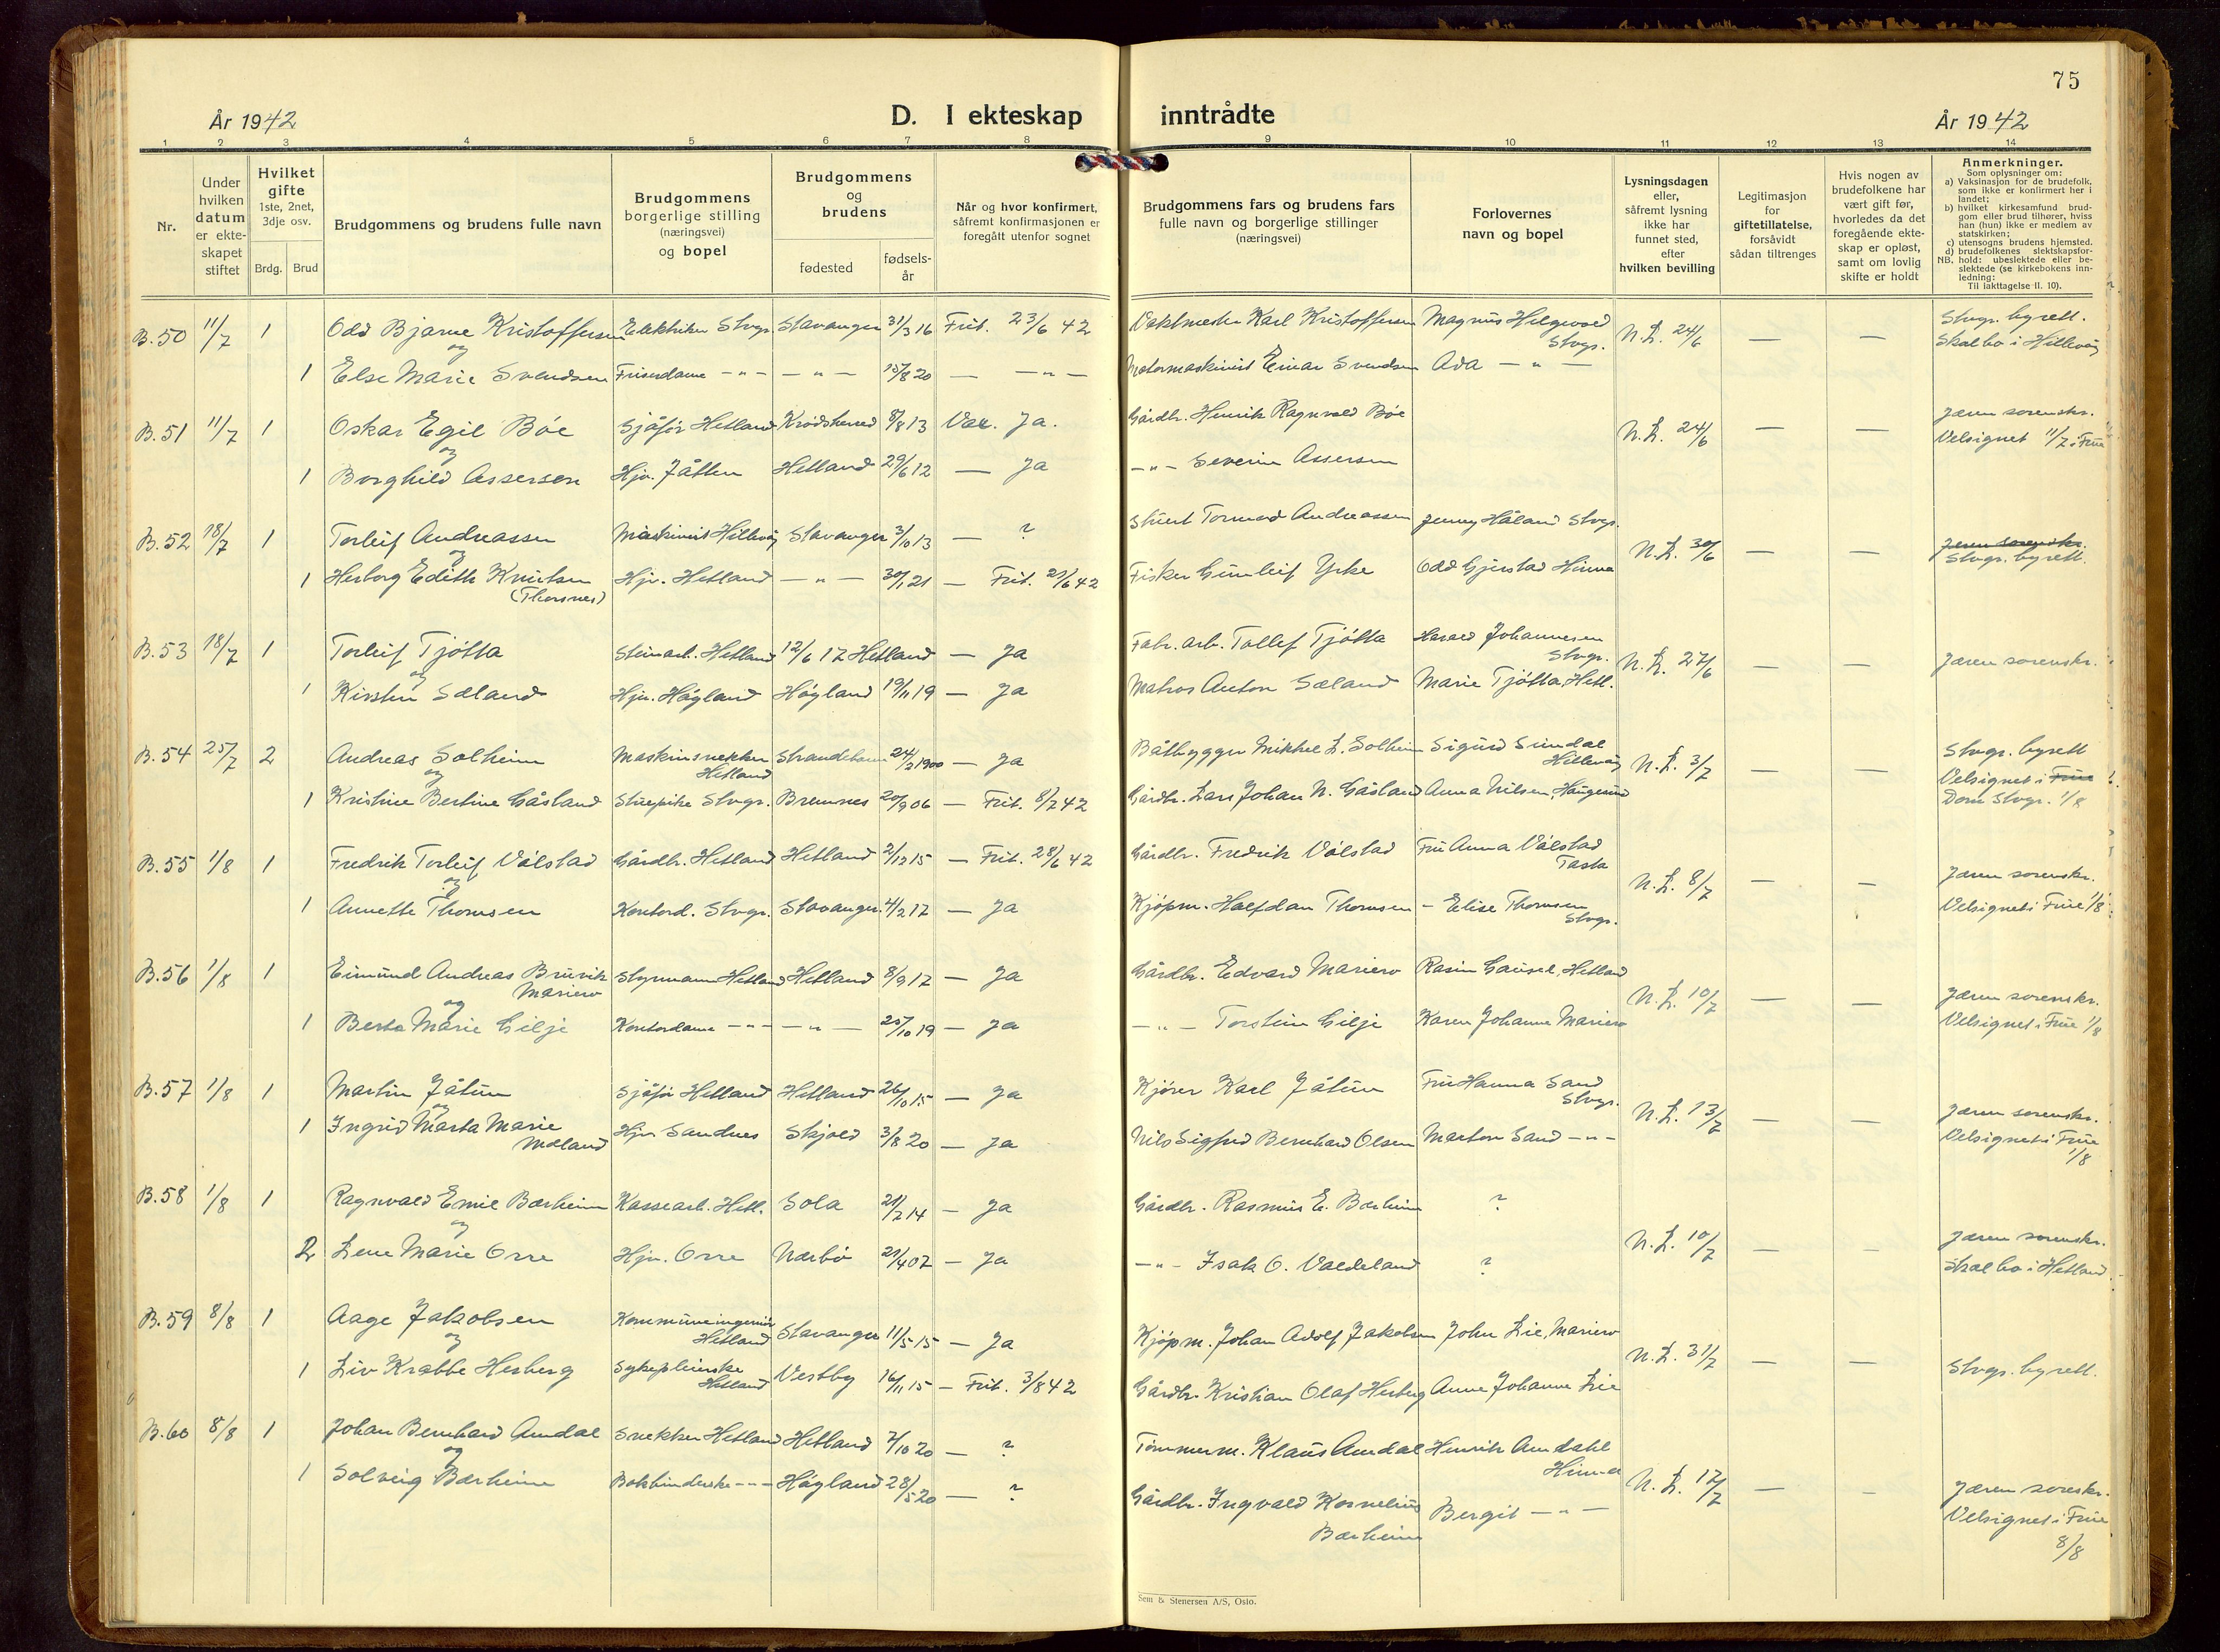 75
År 1942
D. I ekteskap inntrådte
År 1942
1 2 3 4 5 6 7 8 9 10 11 12 13 14
Nr.
Under hvilken datum er ekteskapet stiftet
Hvilket gifte 1ste, 2net, 3dje osv.
Brdg. Brud
Brudgommens og brudens fulle navn
Brudgommens borgerlige stilling (næringsvei) og bopel
Brudgommens og brudens
fødested
fødselsår
Når og hvor konfirmert, såfremt konfirmasjonen er foregått utenfor sognet
Brudgommens fars og brudens fars fulle navn og borgerlige stillinger (næringsvei)
Forlovernes navn og bopel
Lysningsdagen eller, såfremt lysning ikke har funnet sted, efter hvilken bevilling
Legitimasjon for giftetillatelse, forsåvidt sådan tiltrenges
Hvis nogen av brudefolkene har vært gift før, hvorledes da det foregående ekteskap er opløst, samt om lovlig skifte er holdt
Anmerkninger.
Som oplysninger om:
a) Vaksinasjon for de brudefolk, som ikke er konfirmert her i landet;
b) hvilket kirkesamfund brudgom eller brud tilhører, hviss han (hun) ikke er medlem av statskirken;
c) utensogns brudens hjemsted.
d) brudefolkenes slektskapsforhold: ubeslektede eller beslektede (se kirkebokens innledning:
NB. Til iakttagelse II. 10).
B.50 11/7 1 Odd Bjarne Kristoffersen Elektriker Stvgr. Stavanger 31/3 16 Frit. 23/6 42 Vaktmester Karl Kristoffersen Magnus Helgevold Stvgr. N.L. 24/6 — — Stvgr. byrett. Skal bo i Hillevåg
og
1 Else Marie Svendsen Frisørdame -"- — " — 15/8 20 — -"- Motormaskinist Einar Svendsen Ada — " —
B.51 11/7 1 Oskar Egil Bøe Sjåfør Hetland Krødsherred 8/8 13 Vac. Ja. Gårdbr. Henrik Ragnvald Bøe N.L. 24/6 — — Jæren sorenskr. Velsignet 11/7 i Frue
og
1 Borghild Assersen Hjv. Jåtten Hetland 29/6 12 — Ja -"- Severin Assersen
B.52 18/7 1 Torleif Andreassen Maskinist Hillevåg Stavanger 3/10 13 — ? Stuert Tormod Andreassen Jenny Håland Stvgr. N.L. 30/6 — — Jæren sorenskr. Stvgr. byrett.
og
1 Herborg Edith Knutsen (Thorsnes) Hjv. Hetland — " — 30/1 21 — Frit. 21/6 42 Fisker Gunleif Yrke Odd Gjerstad Hinna
B.53 18/7 1 Torleif Tjøtta Steinarb. Hetland 12/6 17 Hetland — Ja Fabr. arb. Tollef Tjøtta Harald Johannesen Stvgr. N.L. 27/6 — — Jæren sorenskr.
og
1 Kirsten Sæland Hjv. Høyland Høyland 19/11 19 — Ja Matros Anton Sæland Marie Tjøtta, Hetl.
B.54 25/7 2 Andreas Solheim Maskinsnekker Hetland Strandebarm 24/2 1900 — Ja Båtbygger Mikkel L. Solheim Sigurd Sundal Hillevåg N.L. 3/7 — — Stvgr. byrett Velsignet i Frue Dom Stvgr. 1/8
og
1 Kristine Bertine Gåsland Stuepike Stvgr. Bremnes 20/9 06 — Frit. 8/7 42 Gårdbr. Lars Johan N. Gåsland Anna Nilsen, Haugesund
B.55 1/8 1 Fredrik Torleif Vølstad Gårdbr. Hetland Hetland 2/12 15 — Frit. 28/6 42 Gårdbr. Fredrik Vølstad Fru Anna Vølstad Tasta N.L. 8/7 — — Jæren sorenskr. Velsignet i Frue 1/8
og
1 Annette Thomsen Kontord. Stvgr. Stavanger 4/2 17 — Ja Kjøpm. Halfdan Thomsen - Elise Thomsen Stvgr.
B.56 1/8 1 Eimund Andreas Bruvik Mariero Styrmann Hetland Hetland 8/9 17 — Ja Gårdbr. Edvard Mariero Rasm Gausel, Hetland N.L. 10/7 — — Jæren sorenskr. Velsignet i Frue 1/8
og
1 Berta Marie Gilje Kontordame -"- — " — 25/10 19 — Ja — " — Torstein Gilje Karen Johanne Mariero
B.57 1/8 1 Martin Jåtun Sjåfør Hetland Hetland 26/10 15 — Ja Kjører Karl Jåtun Fru Hanna Sand Stvgr. N.L. 13/7 — — Jæren sorenskr. Velsignet i Frue 1/8
og
1 Ingrid Marta Marie Mæland Hjv Sandnes Skjold 3/8 20 — Ja Nils Sigfred Bernhard Olsen Marton Sand -"-
B.58 1/8 1 Ragnvald Emil Bærheim Kassearb. Hetl. Sola 21/2 14 — Ja Gårdbr. Rasmus E. Bærheim ? N.L. 10/7 — — Jæren sorenskr. Skal bo i Hetland
og
2 Lene Marie Orre Hjv. Orre Nærbø 21/4 02 — Ja -"- Isak O. Valdeland ?
B.59 8/8 1 Aage Jakobsen Kommuneingeniør Hetland Stavanger 11/5 15 — Ja Kjøpm. Johan Adolf Jakobsen John Lie, Mariero N.L. 31/7 — — Stvgr. byrett.
og
1 Liv Krabbe Herberg Sykepleierske Hetland Vestby 16/11 15 — Frit. 3/8 42 Gårdbr. Kristian Olaf Herberg Anne Johanne Lie
B.60 8/8 1 Johan Bernhard Amdal Snekker Hetland Hetland 7/10 20 — ? Tømmerm. Klaus Amdal Henrik Amdahl Hinna N.L. 17/7 — — Jæren soreskr. Velsignet i Frue 8/8
og
1 Solveig Bærheim Bokbinderske -"- Høyland 28/5 20 — ? Gårdbr. Ingvald Kornelius Bærheim Bergit — " —
Sem & Stenersen A/S, Oslo.